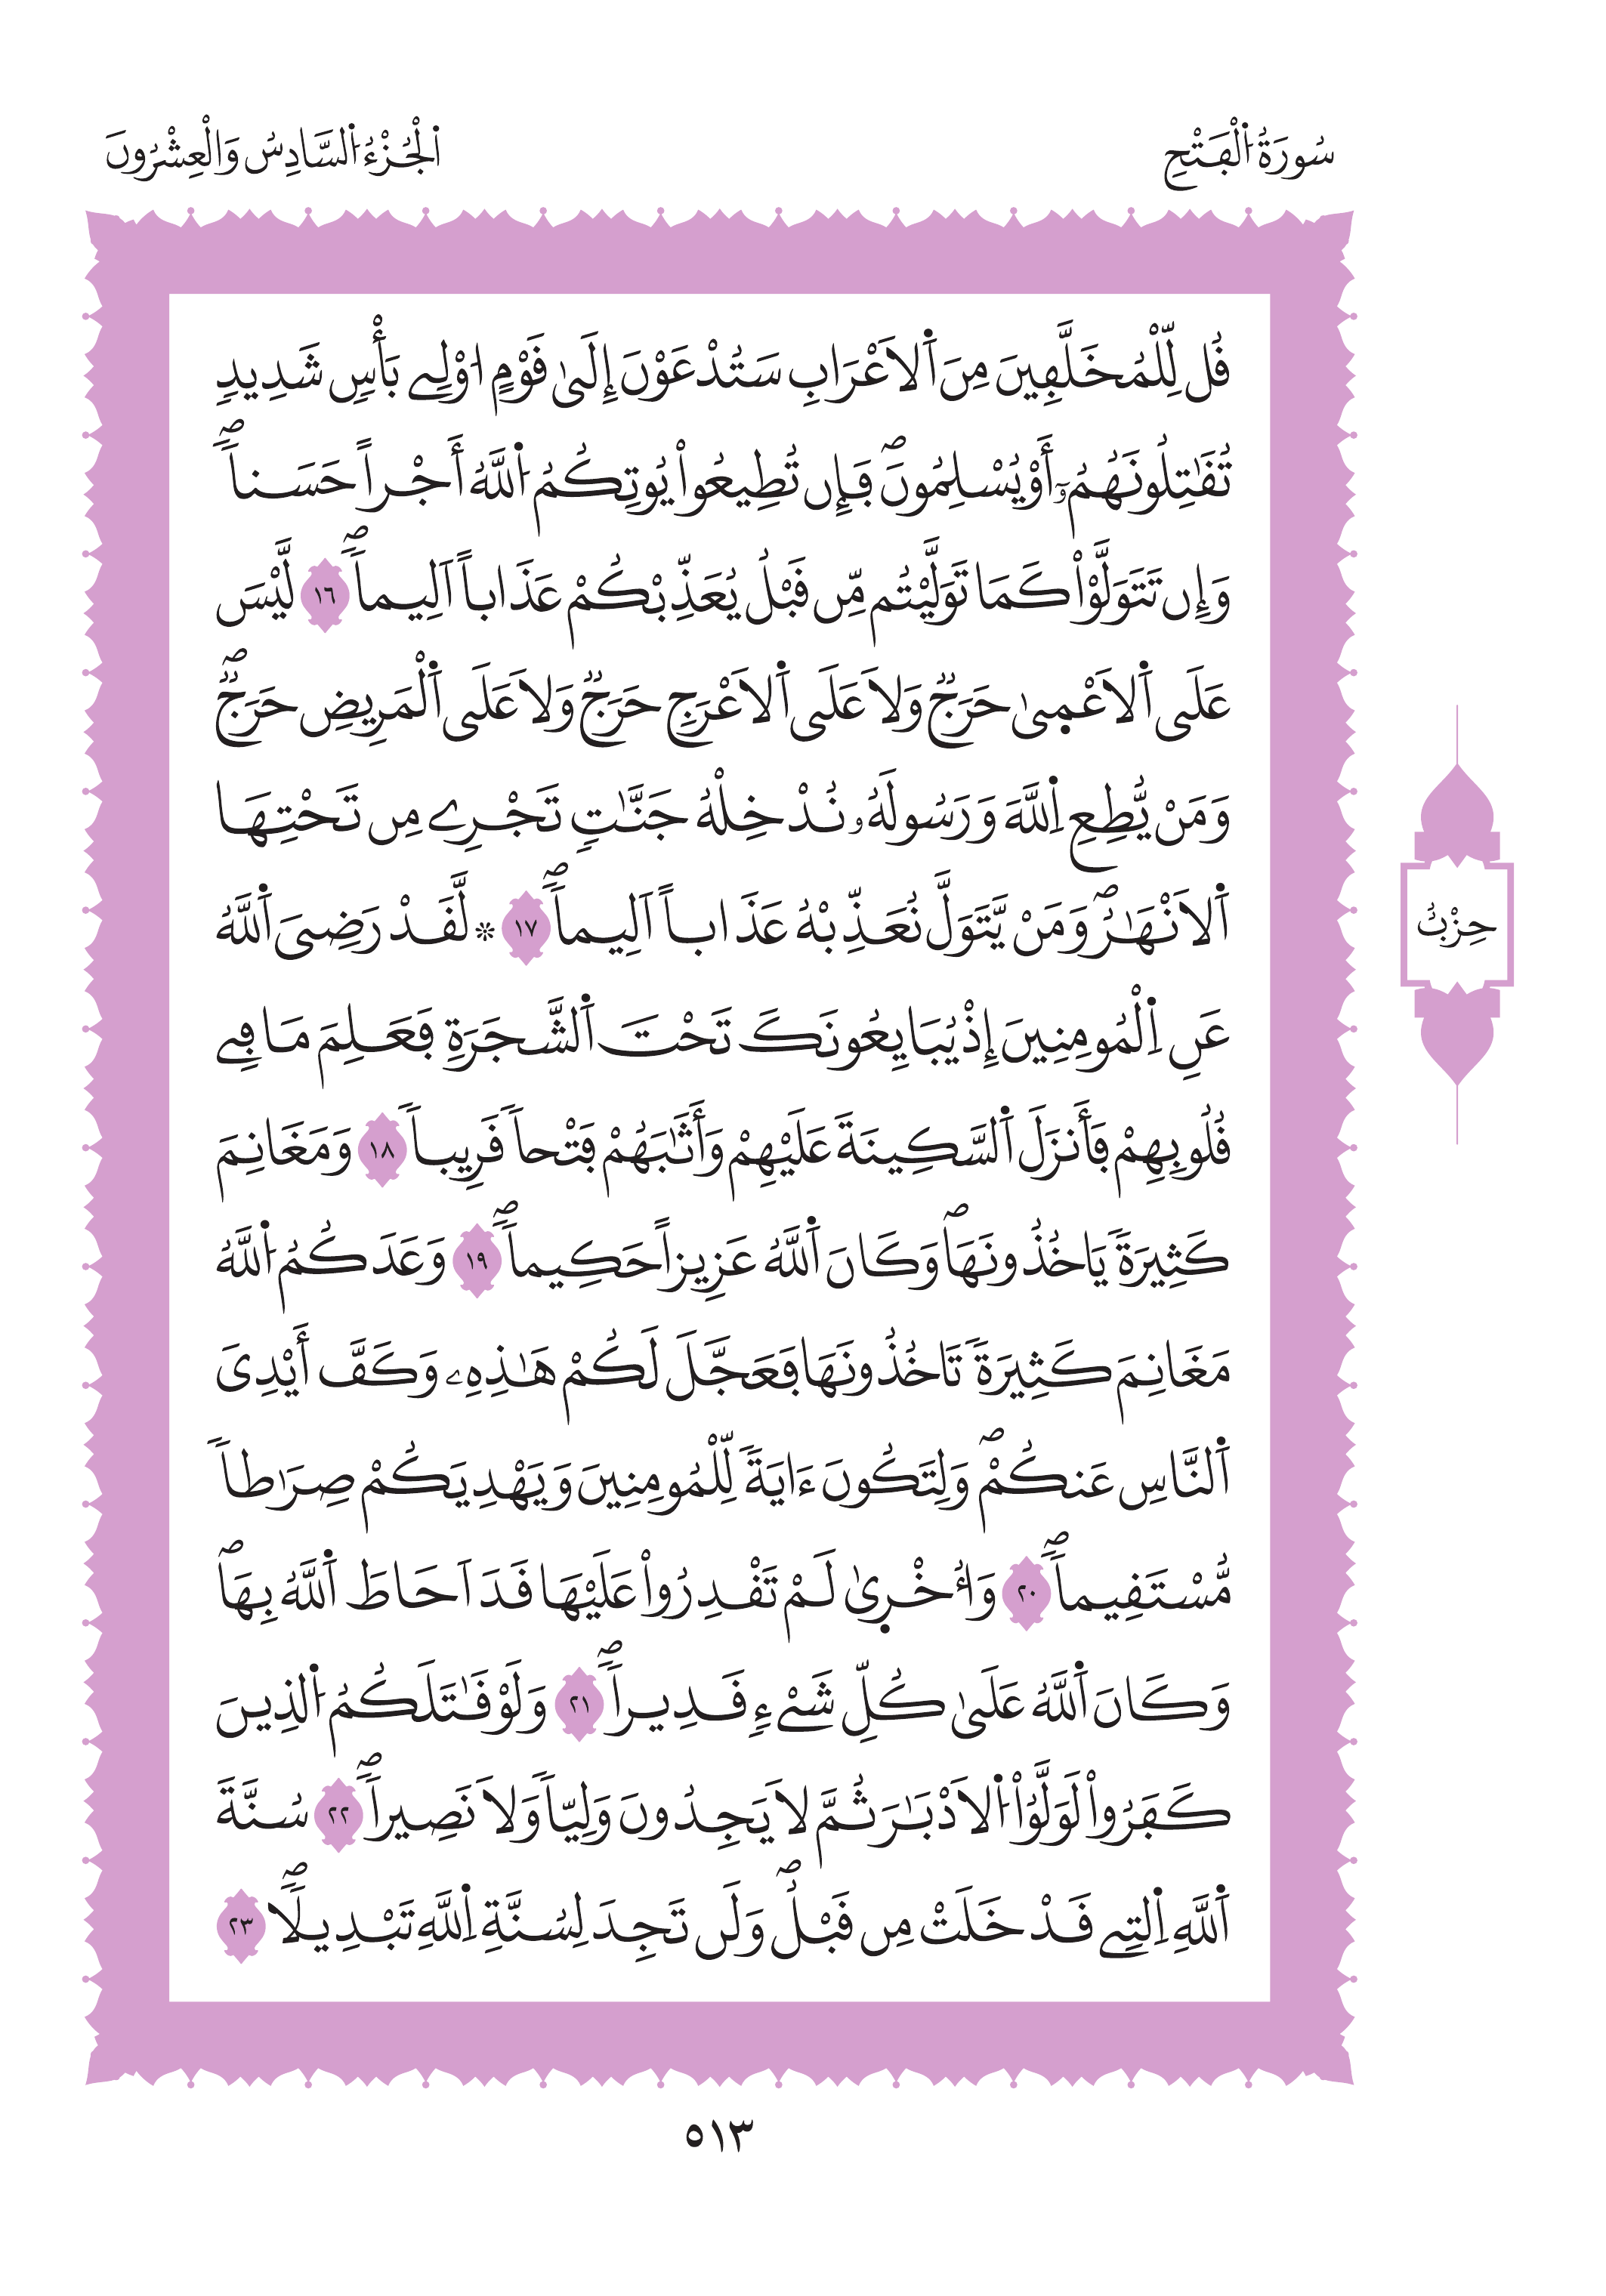 سُورَةُ اُ۬لْفَتْحِ
اَ۬لْجُزْءُ اُ۬لسَّادِسُ وَالْعِشْرُونَ
قُل لِّلْمُخَلَّفِينَ مِنَ اَ۬لَاعْرَابِ سَتُدْعَوْنَ إِلَىٰ قَوْمٍ ا۟وْلِے بَأْسٖ شَدِيدٖ
تُقَٰتِلُونَهُمُۥٓ أَوْ يُسْلِمُونَۖ فَإِن تُطِيعُواْ يُوتِكُمُ اُ۬للَّهُ أَجْراً حَسَناٗۖ
وَإِن تَتَوَلَّوْاْ كَمَا تَوَلَّيْتُم مِّن قَبْلُ يُعَذِّبْكُمْ عَذَاباً اَلِيماٗۖ ١٦ لَّيْسَ
عَلَى اَ۬لَاعْم۪ىٰ حَرَجٞ وَلَا عَلَى اَ۬لَاعْرَجِ حَرَجٞ وَلَا عَلَى اَ۬لْمَرِيضِ حَرَجٞۖ
وَمَنْ يُّطِعِ اِ۬للَّهَ وَرَسُولَهُۥ نُدْخِلْهُ جَنَّٰتٖ تَجْرِے مِن تَحْتِهَا
اَ۬لَانْهَٰرُۖ وَمَنْ يَّتَوَلَّ نُعَذِّبْهُ عَذَاباً اَلِيماٗۖ ١٧ ۞ لَّقَدْ رَضِيَ اَ۬للَّهُ
عَنِ اِ۬لْمُومِنِينَ إِذْ يُبَايِعُونَكَ تَحْتَ اَ۬لشَّجَرَةِ فَعَلِمَ مَا فِے
قُلُوبِهِمْ فَأَنزَلَ اَ۬لسَّكِينَةَ عَلَيْهِمْ وَأَثَٰبَهُمْ فَتْحاٗ قَرِيباٗ ١٨ وَمَغَانِمَ
كَثِيرَةٗ يَاخُذُونَهَاۖ وَكَانَ اَ۬للَّهُ عَزِيزاً حَكِيماٗۖ ١٩ وَعَدَكُمُ اُ۬للَّهُ
مَغَانِمَ كَثِيرَةٗ تَاخُذُونَهَا فَعَجَّلَ لَكُمْ هَٰذِهِۦ وَكَفَّ أَيْدِيَ
اَ۬لنَّاسِ عَنكُمْۖ وَلِتَكُونَ ءَايَةٗ لِّلْمُومِنِينَ وَيَهْدِيَكُمْ صِرَٰطاٗ
مُّسْتَقِيماٗۖ ٢٠ وَأُخْر۪ىٰ لَمْ تَقْدِرُواْ عَلَيْهَا قَدَ اَحَاطَ اَ۬للَّهُ بِهَاۖ
وَكَانَ اَ۬للَّهُ عَلَىٰ كُلِّ شَےْءٖ قَدِيراٗۖ ٢١ وَلَوْ قَٰتَلَكُمُ اُ۬لذِينَ
كَفَرُواْ لَوَلَّوُاْ اُ۬لَادْبَٰرَ ثُمَّ لَا يَجِدُونَ وَلِيّاٗ وَلَا نَصِيراٗۖ ٢٢ سُنَّةَ
اَ۬للَّهِ اِ۬لتِے قَدْ خَلَتْ مِن قَبْلُۖ وَلَن تَجِدَ لِسُنَّةِ اِ۬للَّهِ تَبْدِيلاٗۖ ٢٣
حِزْبُ
٥١٣